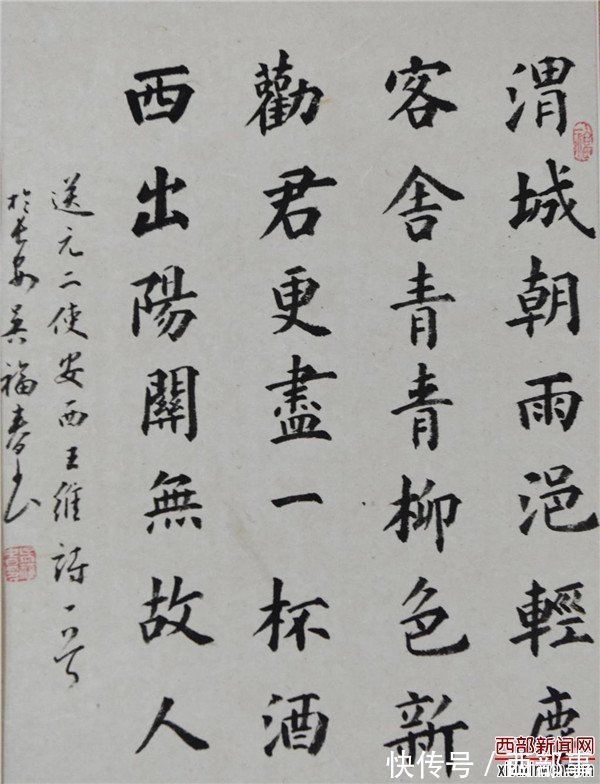 渭城朝雨浥輕塵
客舍青青柳色新
勸君更盡一杯酒
西出陽關無故人
送元二使安西王維詩一首
於長安吳福春書
西部新闻网
快传号/西部事